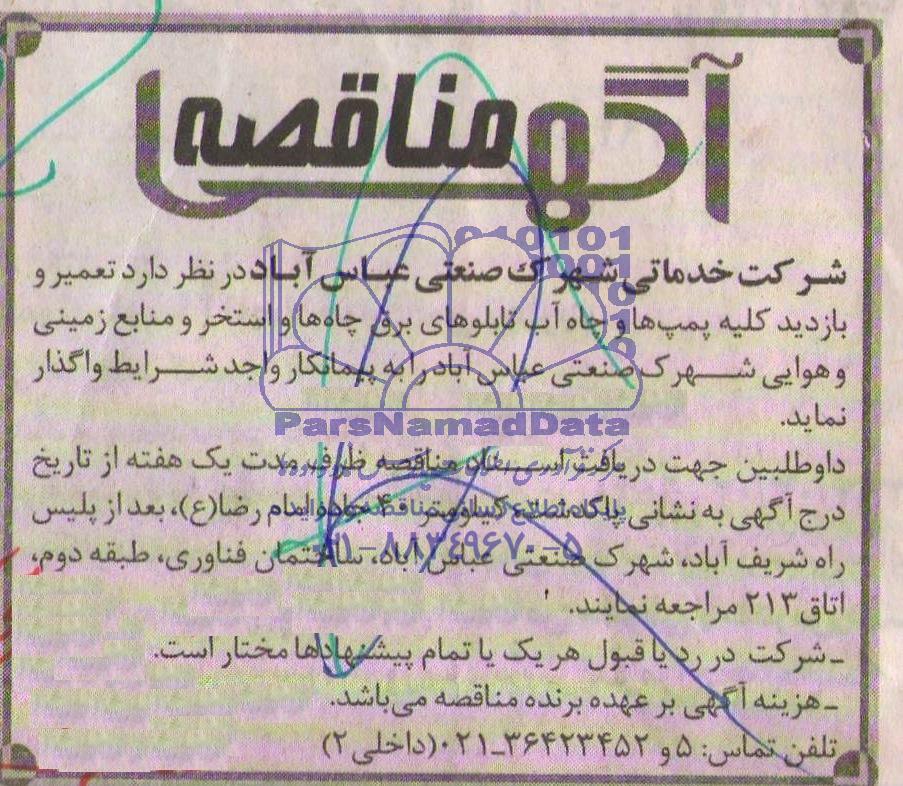 آگهی مناقصه
شرکت خدماتی شهرک صنعتی عباس آباد در نظر دارد تعمیر و
بازدید کلیه پمپ‌ها و چاه آب تابلوهای برق چاه‌ها و استخر و منابع زمینی
و هوایی شهرک صنعتی عباس آباد را به پیمانکار واجد شرایط واگذار
نماید.
داوطلبین جهت دریافت اسناد مناقصه ظرف مدت یک هفته از تاریخ
درج آگهی به نشانی کیلومتر ۴۰ جاده امام رضا(ع)، بعد از پلیس
راه شریف آباد، شهرک صنعتی عباس آباد، ساختمان فناوری، طبقه دوم،
اتاق ۲۱۳ مراجعه نمایند.
ـ شرکت در رد یا قبول هر یک یا تمام پیشنهادها مختار است.
ـ هزینه آگهی بر عهده برنده مناقصه می‌باشد.
تلفن تماس: ۵ و ۳۶۴۲۳۴۵۲ـ۰۲۱ (داخلی ۲)
010101
001
ParsNamadData
۰۲۱-۸۸۳۴۹۶۷۰-۵